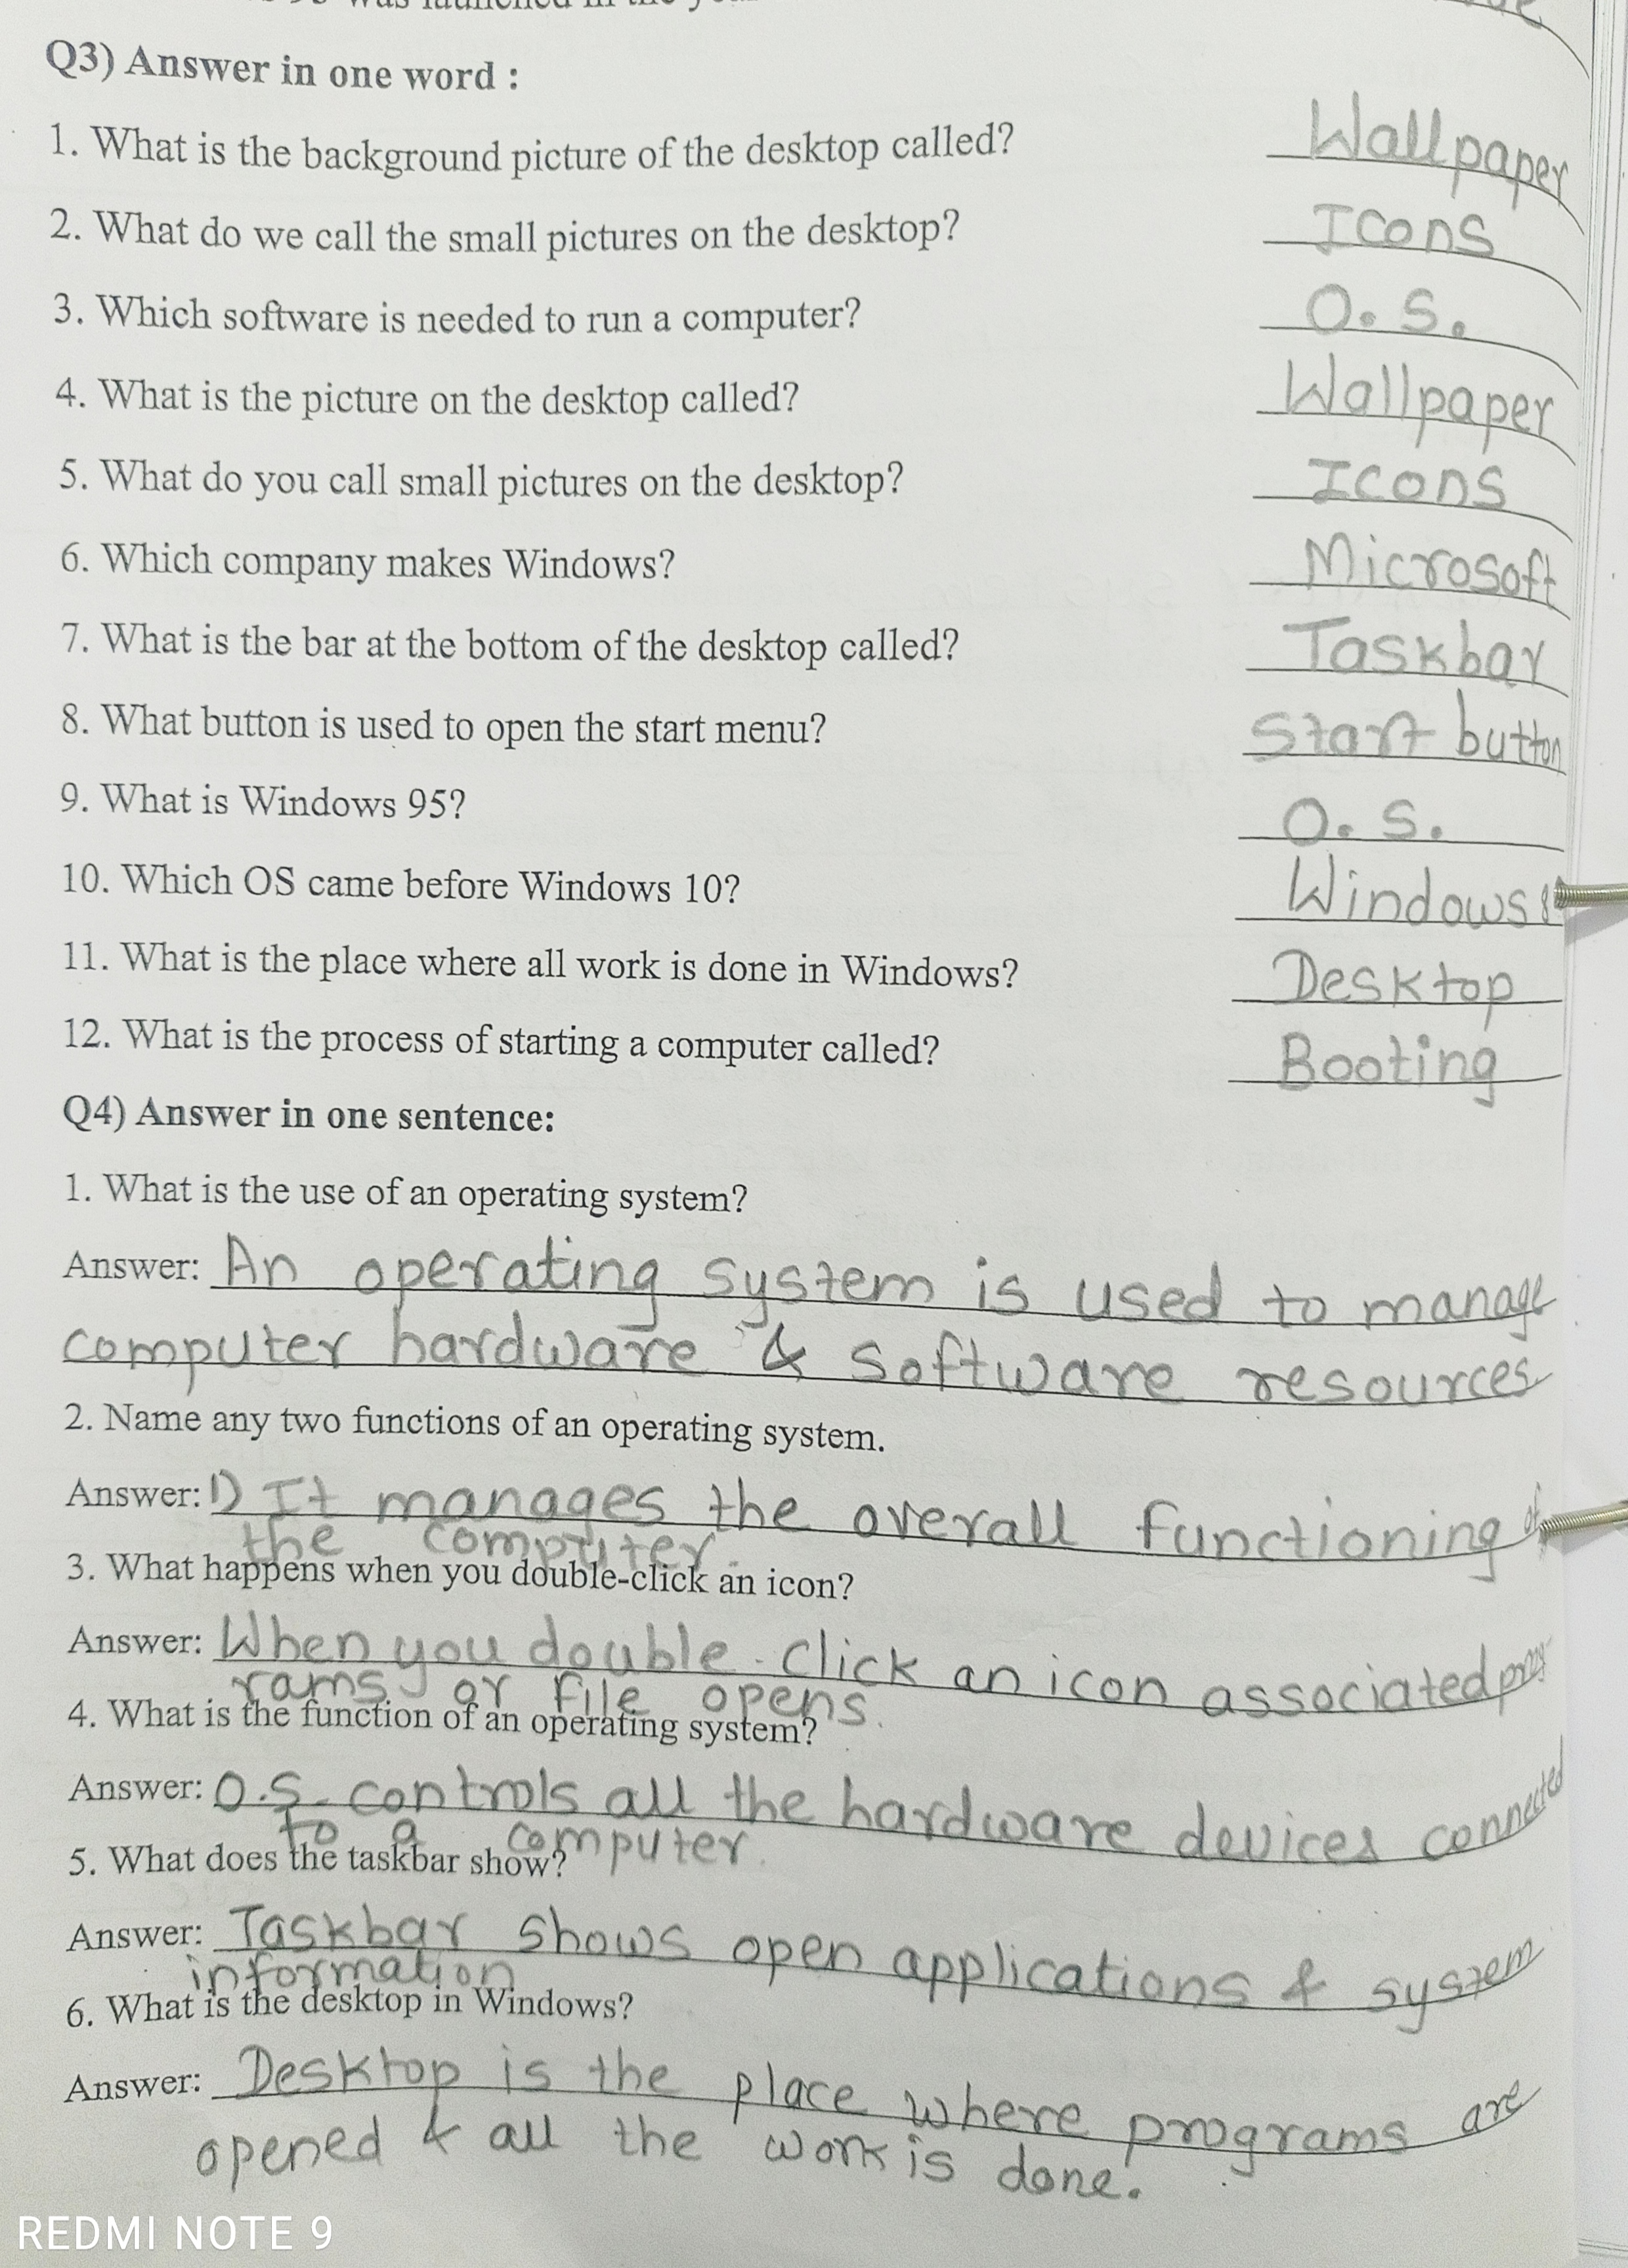 was launched in the
Q3) Answer in one word :
1. What is the background picture of the desktop called? Wallpaper
2. What do we call the small pictures on the desktop? Icons
3. Which software is needed to run a computer? O. S.
4. What is the picture on the desktop called? Wallpaper
5. What do you call small pictures on the desktop? Icons
6. Which company makes Windows? Microsoft
7. What is the bar at the bottom of the desktop called? Taskbar
8. What button is used to open the start menu? Start button
9. What is Windows 95? O. S.
10. Which OS came before Windows 10? Windows 8
11. What is the place where all work is done in Windows? Desktop
12. What is the process of starting a computer called? Booting
Q4) Answer in one sentence:
1. What is the use of an operating system?
Answer: An operating system is used to manage
computer hardware & software resources
2. Name any two functions of an operating system.
Answer: 1) It manages the overall functioning of
the computer.
3. What happens when you double-click an icon?
Answer: When you double-click an icon associated prog-
rams or file opens.
4. What is the function of an operating system?
Answer: O.S. controls all the hardware devices connected
to a computer.
5. What does the taskbar show?
Answer: Taskbar shows open applications & system
information
6. What is the desktop in Windows?
Answer: Desktop is the place where programs are
opened & all the work is done.
REDMI NOTE 9